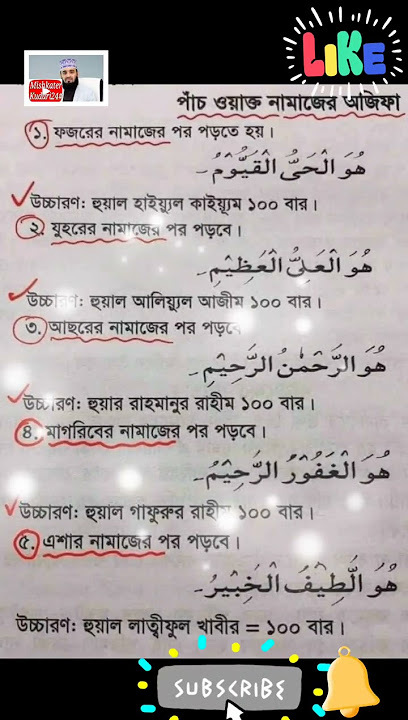 LIKE
Mishkater
Kudari244
পাঁচ ওয়াক্ত নামাজের অজিফা
১. ফজরের নামাজের পর পড়তে হয়।
هُوَ الْحَىُّ الْقَيُّوْمُ۔
উচ্চারণ: হুয়াল হাইয়্যুল কাইয়্যুম ১০০ বার।
২. যুহরের নামাজের পর পড়বে।
هُوَ الْعَلِىُّ الْعَظِيْمِ۔
উচ্চারণ: হুয়াল আলিয়্যুল আজীম ১০০ বার।
৩. আছরের নামাজের পর পড়বে
هُوَ الرَّحْمٰنُ الرَّحِيْمِ۔
উচ্চারণ: হুয়ার রাহমানুর রাহীম ১০০ বার।
৪. মাগরিবের নামাজের পর পড়বে।
هُوَ الْغَفُوْرُ الرَّحِيْمُ۔
উচ্চারণ: হুয়াল গাফুরুর রাহীম ১০০ বার।
৫. এশার নামাজের পর পড়বে।
هُوَ الَّطِيْفُ الْخَبِيْرُ۔
উচ্চারণ: হুয়াল লাত্বীফুল খাবীর = ১০০ বার।
SUBSCRIBE